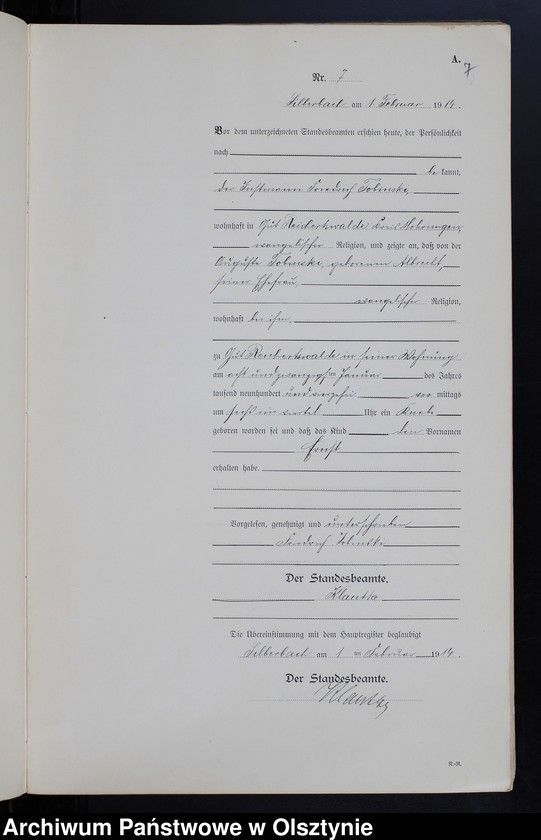 A.
7
Nr. 7
Silberbach am 1 Februar 1914.
Vor dem unterzeichneten Standesbeamten erschien heute, der Persönlichkeit
nach
be kannt,
der Instmann Friedrich Tolinski,
wohnhaft in Gut Reichertswalde Kreis Mohrungen,
evangelischer Religion, und zeigte an, daß von der
Auguste Tolinski, geborenen Albrecht,
seiner Ehefrau,
evangelischer Religion,
wohnhaft bei ihm,
zu Gut Reichertswalde in seiner Wohnung
am acht und zwanzigsten Januar des Jahres
tausend neunhundert und vierzehn vor mittags
um sechs ein viertel Uhr ein Knabe
geboren worden sei und daß das Kind den Vornamen
Ernst
erhalten habe.
Vorgelesen, genehmigt und unterschrieben
Friedrich Tolinski
Der Standesbeamte.
Klautke
Die Übereinstimmung mit dem Hauptregister beglaubigt
Silberbach am 1 ten Februar 1914.
Der Standesbeamte.
Klautke
Archiwum Państwowe w Olsztynie